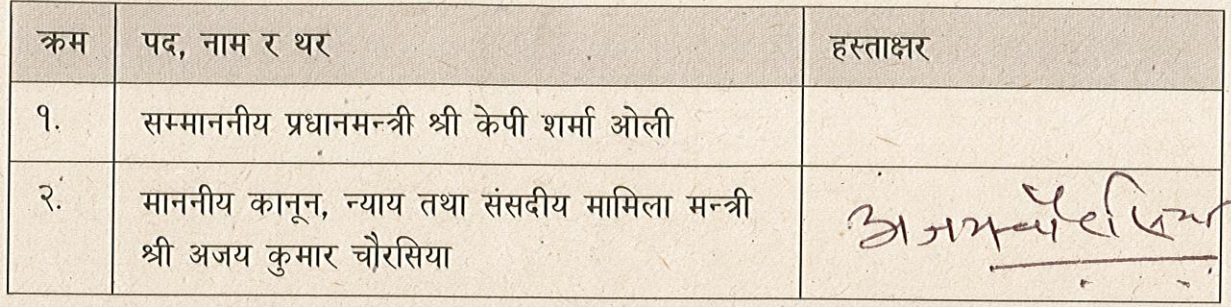 क्रम पद, नाम र थर हस्ताक्षर
१. सम्माननीय प्रधानमन्त्री श्री केपी शर्मा ओली
२. माननीय कानून, न्याय तथा संसदीय मामिला मन्त्री
श्री अजय कुमार चौरसिया
अजय चौरसिया